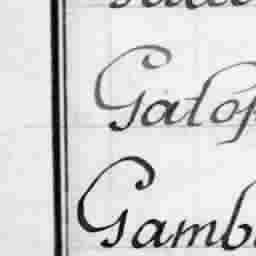 Galop
Gamb